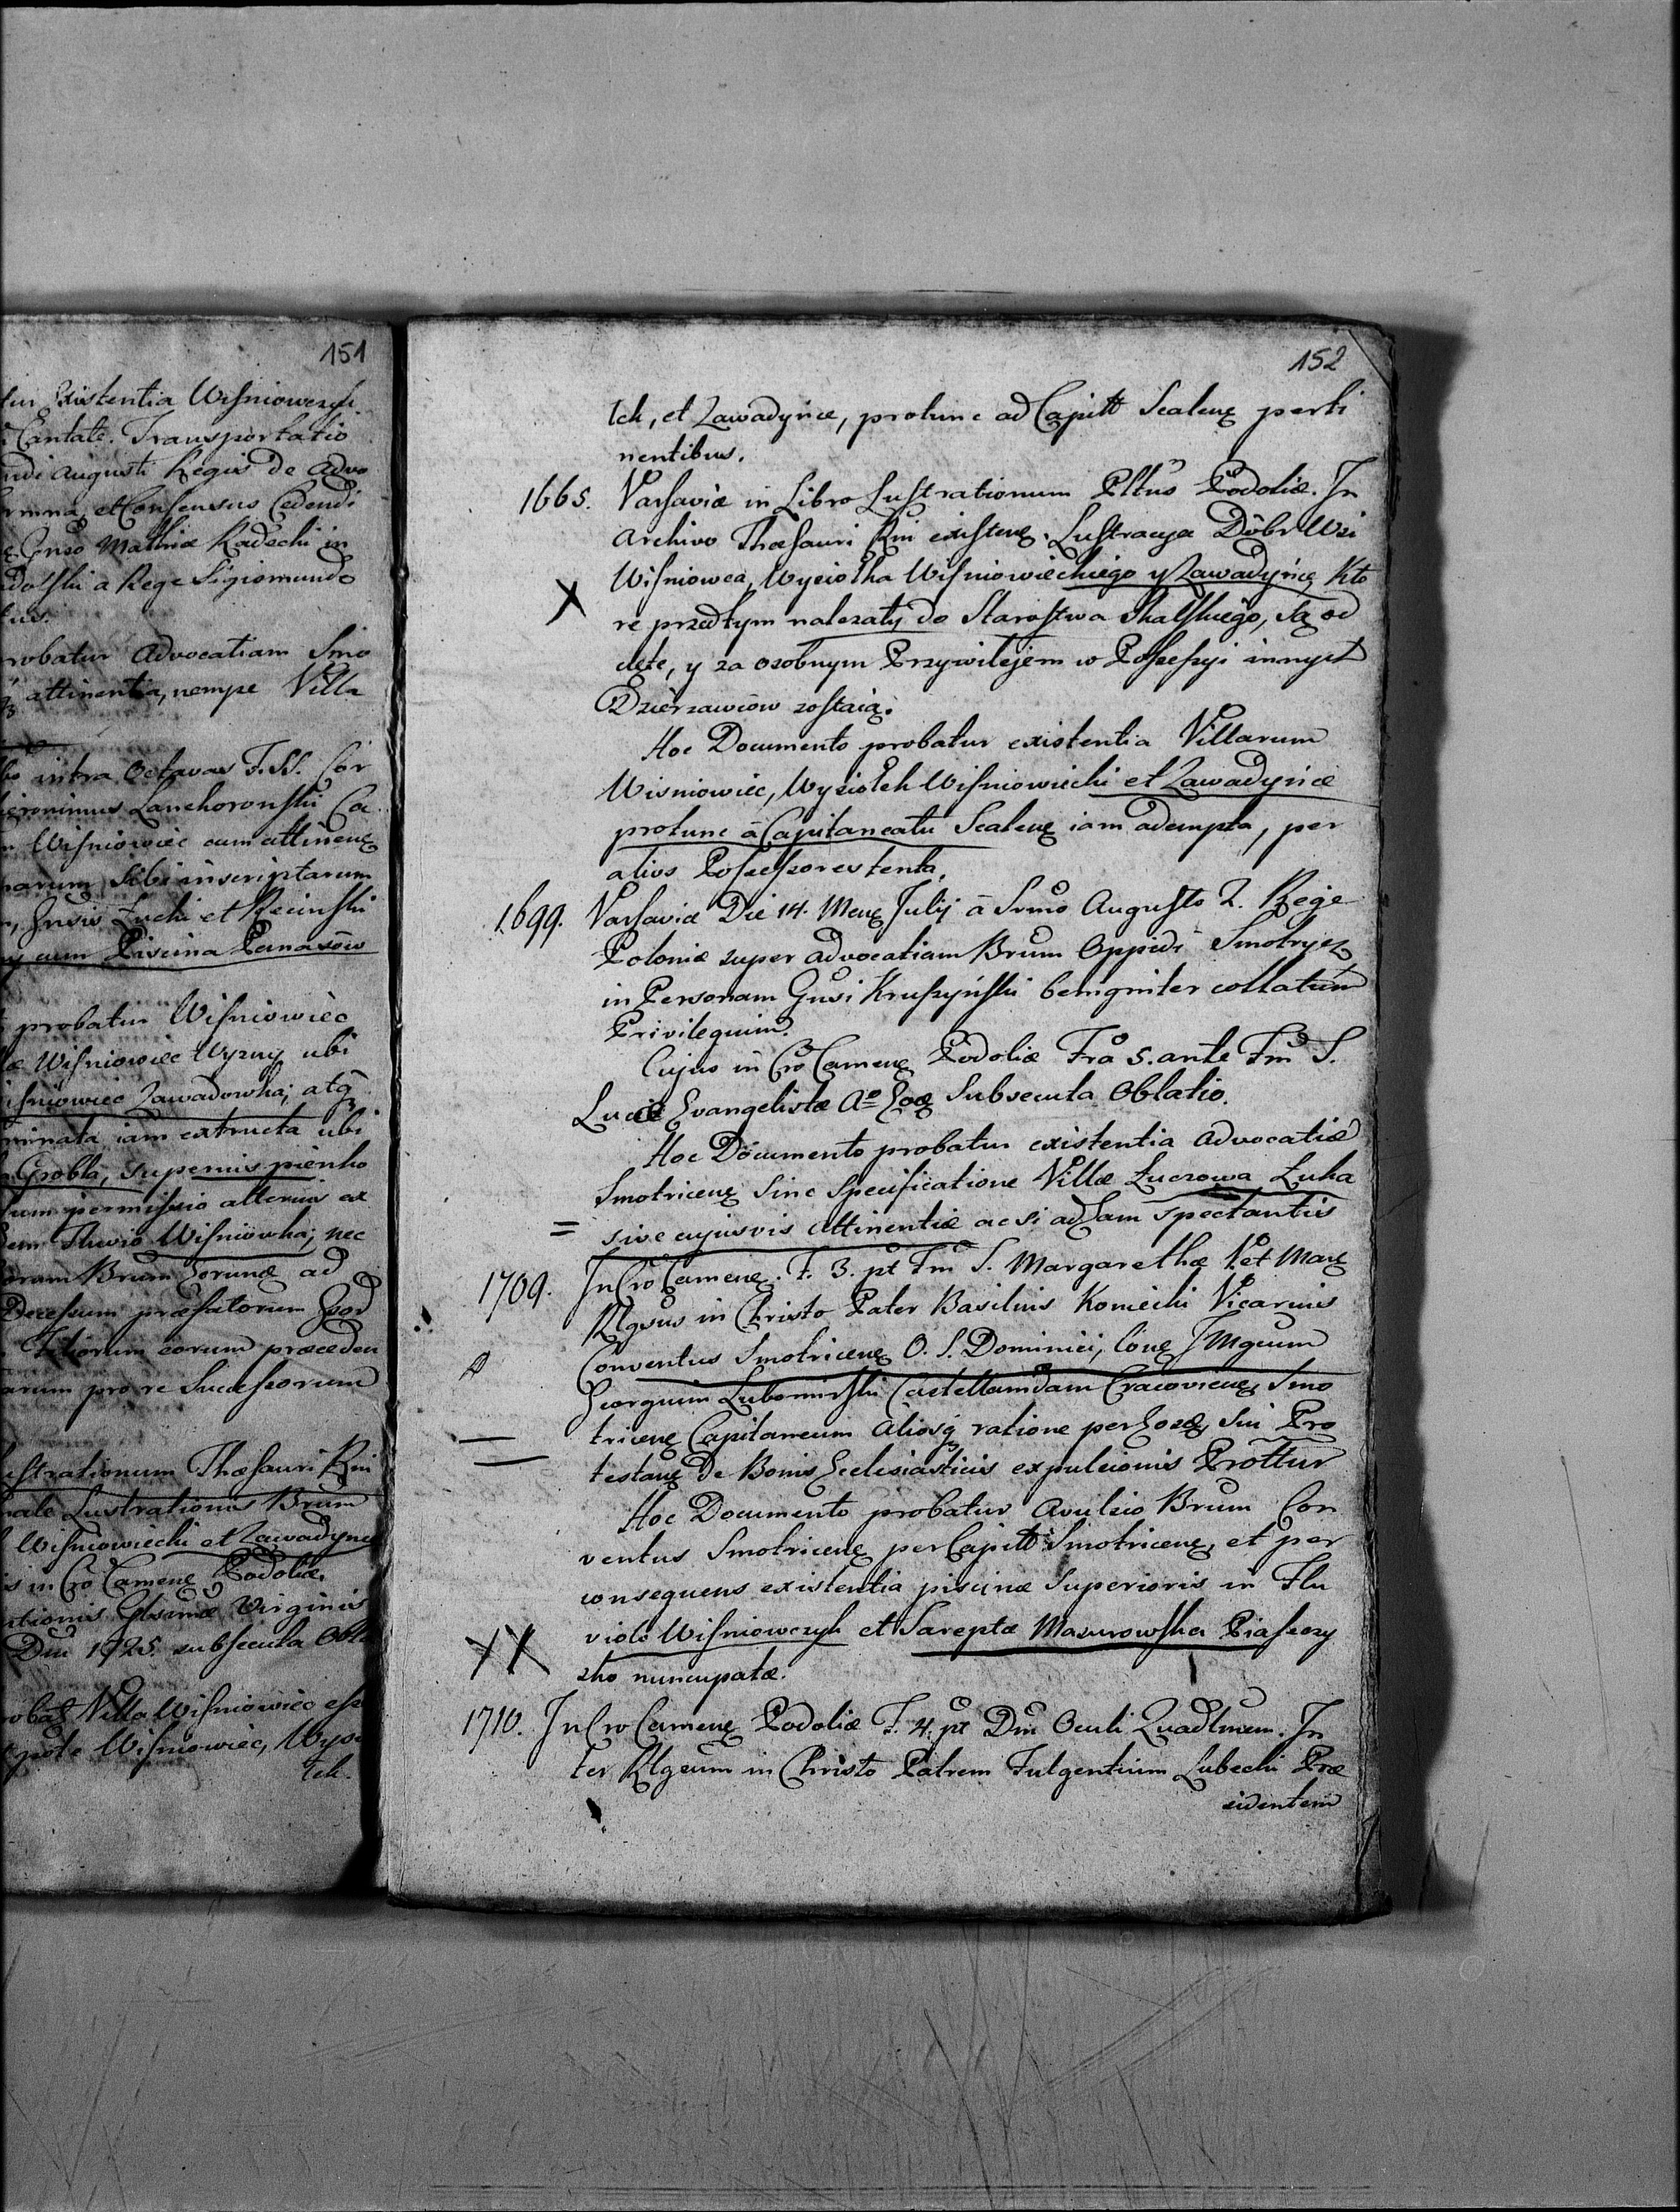 151
tur Existentia Wiśniowczyk.
Cantate. Transportatio
ndi Augusti Regis de Advo
et Consensus Cedendi
Gnso Mathiæ Kadecki in
a Rege Sigismundo
robatur Advocatiam Smo
attinentia, nempe Villa
intra Octavas F. SS. Cor
ieronimus Lanckoronski Ca
Wiśniowiec cum attineng
arum sibi inscriptarum
Gnsis Zucki et Recinski
cum Piscina Panasów
probatur Wiśniowiec
Wiśniowiec Wyzny ubi
iśniowiec Zawadowka; atq3
minata iam extructa ubi
Grobla, supernis pienko
um permissio alterius ex
em Fluvio Wiśniowka; nec
oram Brum Eorund ad
Decessum præfatorum
Filiorum eorum præceden
arum pro re Successorum
ustrationum Thesauri Rni
nale Lustrationis Brum
Wiśniowiecki et Zawadynce
is in Cro Cameng Podoliæ.
ationis Glsimæ Virginis
Dni 1725. subsecuta Obla
robat Villa Wiśniowiec esse
pote Wiśniowiec, Wyso
łek.
152
łek, et Zawadyńce, protunc ad Capitt Scaleng perti
nentibus.
1665. Varsaviæ in Libro Lustrationum Pltus Podoliæ. In
Archivo Thesauri Rni existeng. Lustracya Dóbr Wsi
Wiśniowca, Wysiołka Wiśniowieckiego y Zawadyńcę kto
re przedtym należały do Starostwa Skalskiego, są od
dęte, y za osobnym Przywilejem w Possessyi innych
Dzierzawców zostaią.
Hoc Documento probatur existentia Villarum
Wisniowiec, Wysiołek Wiśniowiecki et Zawadyńce
protunc à Capitaneatu Scaleng iam adempta, per
alios Possessores tenta.
1699. Varsaviæ Die 14. Meng Julij à Srmo Augusto 2. Rege
Poloniæ super Advocatiam Brum Oppidi Smotrycz
in Personam Gnsi Kruszyński benigniter collatum
Privilegium.
Cujus in Cro Cameng Podoliæ Fra 5. ante Fm S.
Lucæ Evangelistæ Ao Eog subsecuta Oblatio.
Hoc Documento probatur existentia Advocatiæ
Smotriceng sine specificatione Villæ Łuczowa Łuka
= sive cujusvis Attinentiæ ac si ad Eam spectantis
1709. In Cro Cameng. F. 3. pt Fm S. Margarethæ V. et Marg
Rlgsus in Christo Pater Basilius Koniecki Vicarius
Conventus Smotriceng O. S. Dominici, Cong IMgnum
Georgium Lubomirski Castellanidam Cracovieng, Smo
triceng Capitaneum aliosq ratione per Eosd, sui Pro
testang de Bonis Ecclesiasticis expulsionis Prottur
Hoc Documento probatur Avulsio Brum Con
ventus Smotriceng per Capitt Smotriceng, et per
consequens existentia piscinæ Superioris in Flu
violo Wiśniowczyk et Sareptæ Mazurowska Piaseczy
zko nuncupatæ.
1710. In Cro Cameng Podoliæ F. 4. pt Dni Oculi Quadlmem. In
ter Rlgsum in Christo Patrem Fulgentium Lubecki Præ
sidentem